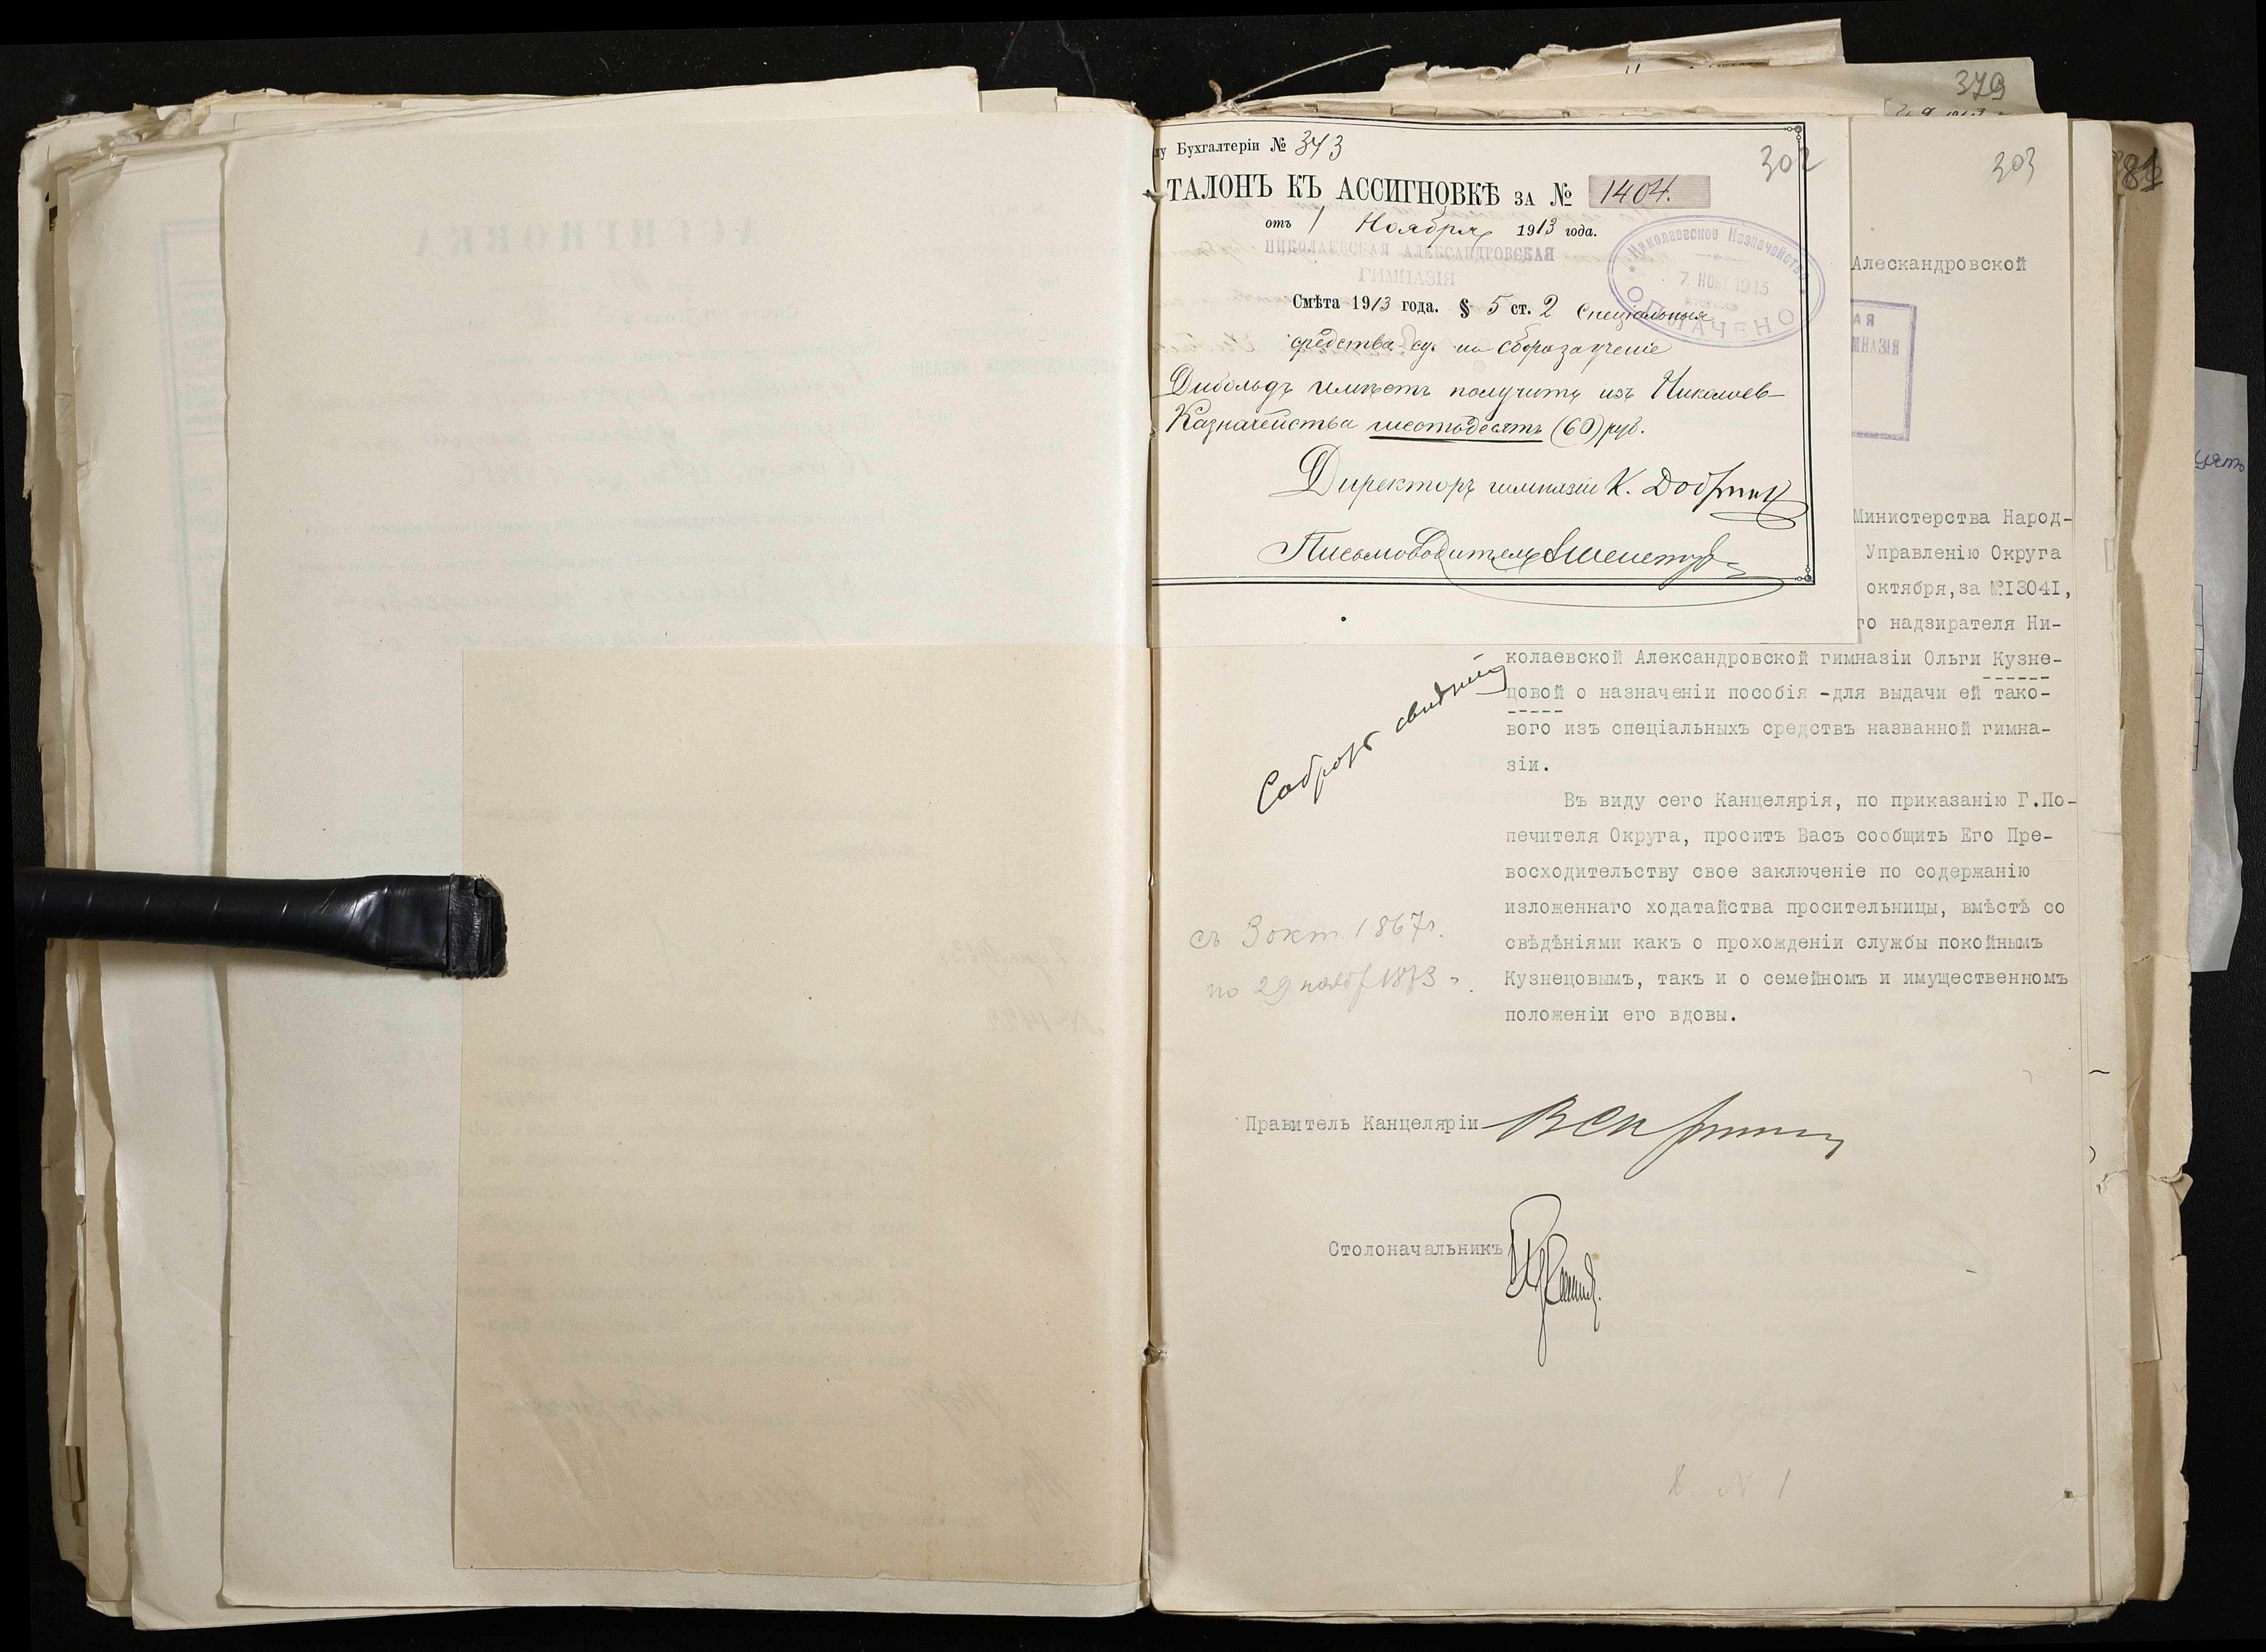 379
302
303
81
лу Бухгалтеріи № 343
ТАЛОНЪ КЪ АССИГНОВКѢ ЗА № 1404.
отъ 1 Ноября 1913 года.
НИКОЛАЕВСКАЯ АЛЕКСАНДРОВСКАЯ
ГИМНАЗІЯ
Николаевское Казначейство
7 НОЯ 1913
ОПЛАЧЕНО
Смѣта 1913 года. § 5 ст. 2 Спеціальныя
средства сбора за ученіе
Дибольдъ имѣетъ получить изъ Николаев-
Казначейства шестьдесятъ (60) руб.
Директоръ гимназіи К.
Письмоводитель
Алескандровской
АЯ
МНАЗІЯ
Министерства Народ-
Управленію Округа
октября, за №13041,
го надзирателя Ни-
колаевской Александровской гимназіи Ольги Кузне-
цовой о назначеніи пособія -для выдачи ей тако-
вого изъ спеціальныхъ средствъ названной гимна-
зіи.
Въ виду сего Канцелярія, по приказанію Г.По-
печителя Округа, проситъ Васъ сообщить Его Пре-
восходительству свое заключеніе по содержанію
изложеннаго ходатайства просительницы, вмѣстѣ со
свѣдѣніями какъ о прохожденіи службы покойнымъ
Кузнецовымъ, такъ и о семейномъ и имущественномъ
положеніи его вдовы.
съ 3 окт. 1867 г.
по 29 нояб 1873 г.
Правитель Канцеляріи
Столоначальникъ